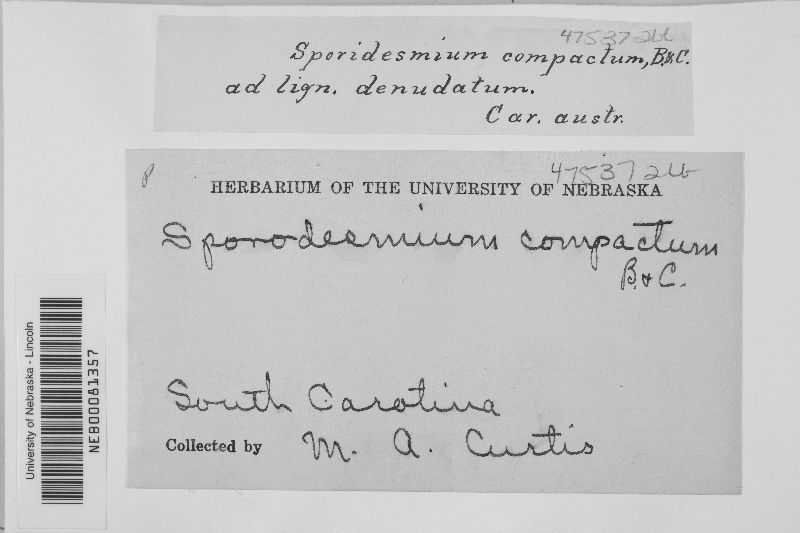 475372ub
Sporidesmium compactum, B.&C.
ad lign. denudatum.
Car. austr.
P
475372ub
HERBARIUM OF THE UNIVERSITY OF NEBRASKA
Sporodesmium compactum
B. & C.
South Carolina
Collected by M. A. Curtis
University of Nebraska - Lincoln
NEB00081357